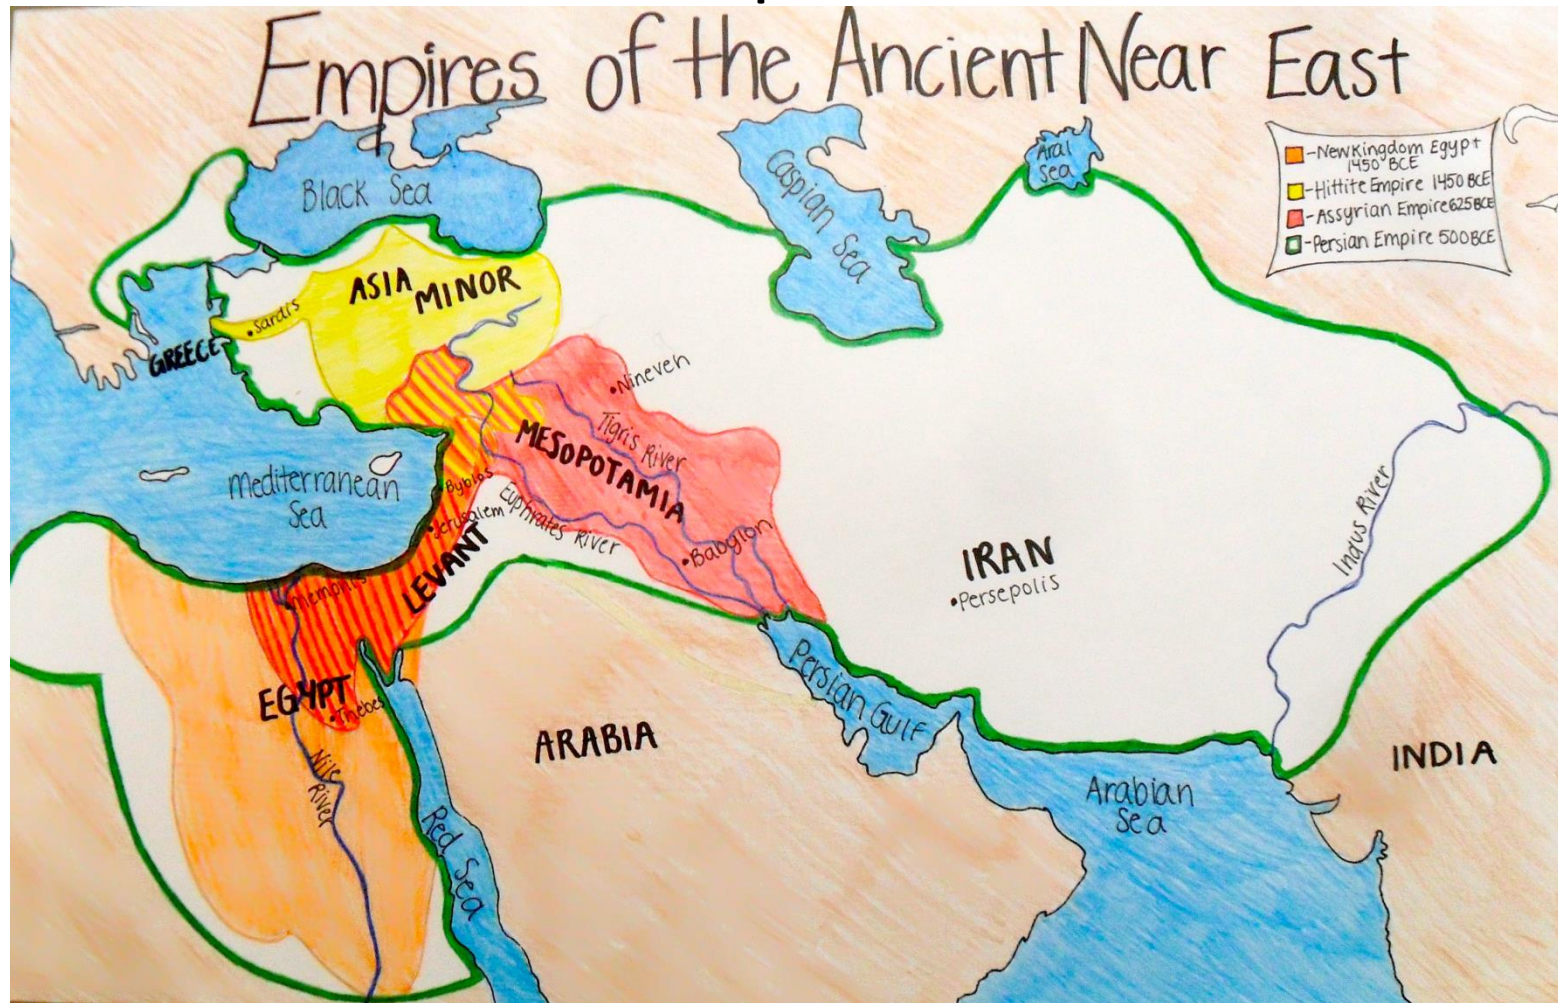 Empires of the Ancient Near East
-New Kingdom Egypt
1450 BCE
-Hittite Empire 1450 BCE
-Assyrian Empire 625 BCE
-Persian Empire 500 BCE
Black Sea
Caspian Sea
Aral
Sea
ASIA MINOR
Sardis
GREECE
Nineven
Tigris River
MESOPOTAMIA
Mediterranean
Sea
Byblos
Jerusalem
Euphrates River
Babylon
LEVANT
Memphis
IRAN
Persepolis
Indus River
EGYPT
Thebes
Nile
River
Red Sea
ARABIA
Persian Gulf
Arabian
Sea
INDIA